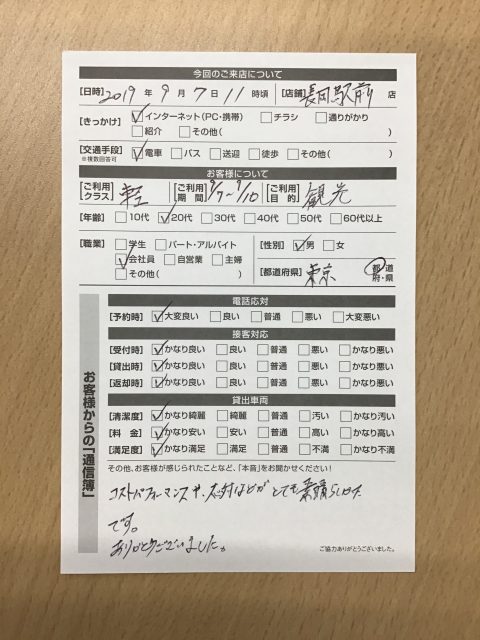 今回のご来店について
[日時] 2019 年 9 月 7 日 11 時頃 [店舗] 長岡駅前 店
[きっかけ] ☑インターネット(PC・携帯) □チラシ □通りがかり
□紹介 □その他( )
[交通手段] ☑電車 □バス □送迎 □徒歩 □その他( )
※複数回答可
お客様について
[ご利用クラス] 軽 [ご利用期間] 9/7~9/10 [ご利用目的] 観光
[年齢] □10代 ☑20代 □30代 □40代 □50代 □60代以上
[職業] □学生 □パート・アルバイト [性別] ☑男 □女
☑会社員 □自営業 □主婦
□その他( ) [都道府県] 東京 都・道・府・県
お客様からの「通信簿」
電話応対
[予約時] ☑大変良い □良い □普通 □悪い □大変悪い
接客対応
[受付時] ☑かなり良い □良い □普通 □悪い □かなり悪い
[貸出時] ☑かなり良い □良い □普通 □悪い □かなり悪い
[返却時] ☑かなり良い □良い □普通 □悪い □かなり悪い
貸出車両
[清潔度] ☑かなり綺麗 □綺麗 □普通 □汚い □かなり汚い
[料 金] ☑かなり安い □安い □普通 □高い □かなり高い
[満足度] ☑かなり満足 □満足 □普通 □不満 □かなり不満
その他、お客様が感じられたことなど、「本音」をお聞かせください!
コストパフォーマンスや、対応などがとても素晴らしいです。
ありがとうございました。
ご協力ありがとうございました。